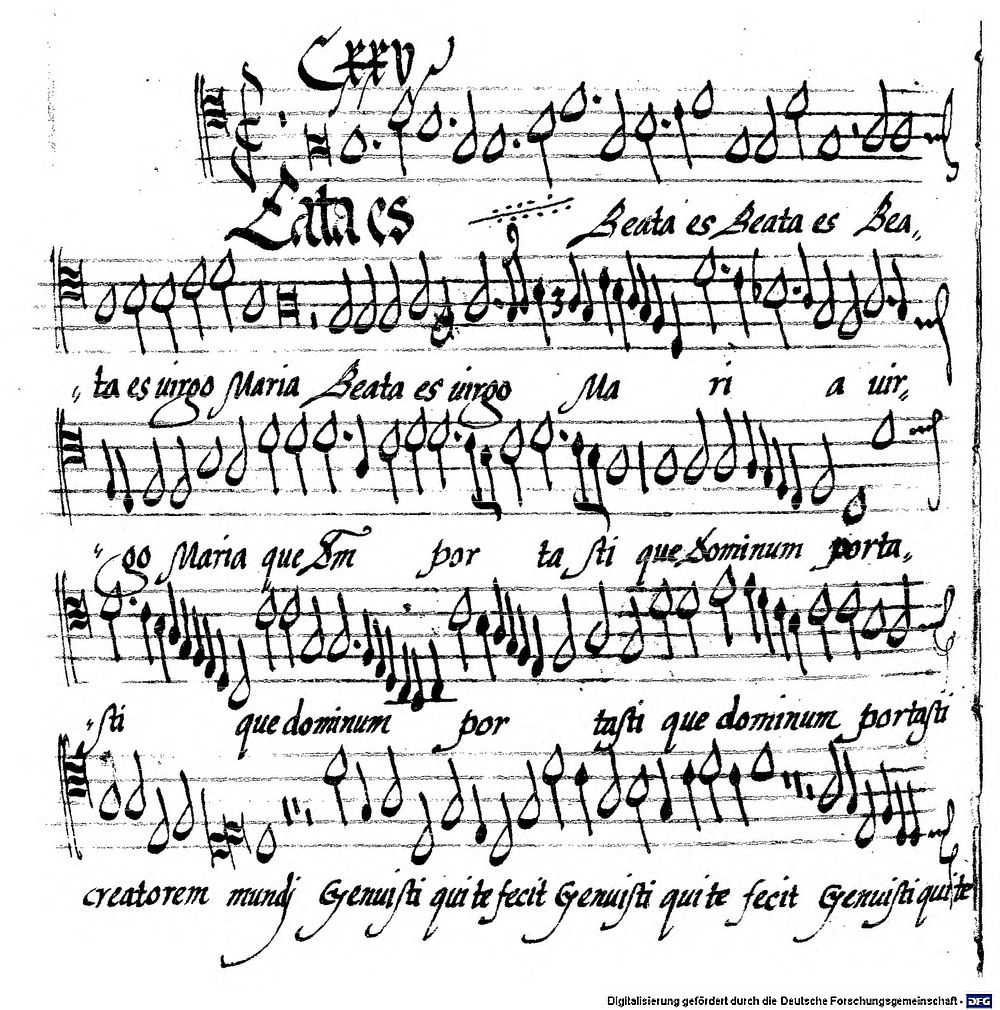 CXXV
Eata es Beata es Beata es Bea,,
,,ta es virgo Maria Beata es virgo Ma ri a vir,,
,,go Maria que Dm̄ por ta sti que Dominum porta,,
,,sti que dominum por tasti que dominum portasti
creatorem mundj Genuisti qui te fecit Genuisti qui te fecit Genuisti qui te
Digitalisierung gefördert durch die Deutsche Forschungsgemeinschaft - DFG